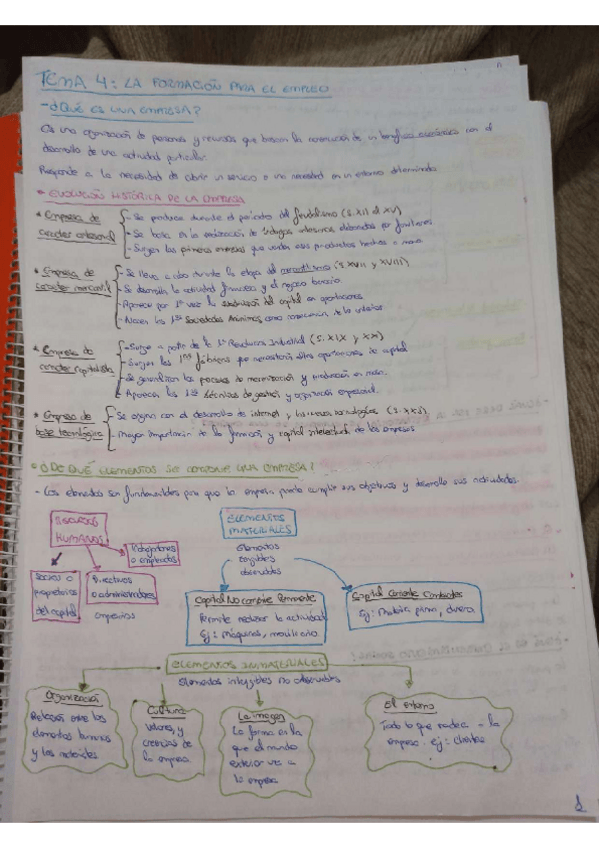 TEMA 4: LA FORMACIÓN PARA EL EMPLEO
- ¿QUÉ ES UNA EMPRESA?
Es una organización de personas y recursos que buscan la de un beneficio económico con el
desarrollo de una actividad particular.
Responde a la necesidad de cubrir un servicio o una necesidad en un entorno determinado.
EVOLUCIÓN HISTÓRICA DE LA EMPRESA
Empresa de carácter artesanal
- Se produce durante el periodo del feudalismo (S. XII al XV)
- Se basa en la de trabajos artesanos elaborados por familiares
- Surgen las primeras empresas que venden esos productos hechos a mano.
Empresa de carácter mercantil
- Se lleva a cabo durante la etapa del mercantilismo (S. XVII y XVIII)
- Se desarrolla la actividad financiera y el negocio bancario
- Aparece por 1ª vez la del capital en aportaciones
- Nacen las 1ª Sociedades Anónimas como consecuencia de lo anterior
Empresa de carácter capitalista
- Surge a partir de la 1ª Revolución Industrial (S. XIX y XX)
- Surgen las 1ªs fábricas que necesitarán altas aportaciones de capital
- Se generalizan los procesos de mecanización y producción en masa.
- Aparecen las 1ª técnicas de gestión y organización empresarial.
Empresa de base tecnológica
- Se origina con el desarrollo de internet y las nuevas tecnologías (S. XXI)
- Mayor importancia de la formación y capital intelectual de las empresas
¿DE QUÉ ELEMENTOS SE COMPONE UNA EMPRESA?
- Los elementos son fundamentales para que la empresa pueda cumplir sus objetivos y desarrolle sus actividades.
RECURSOS HUMANOS
Trabajadores o empleados
Socios o propietarios del capital
Directivos o administradores
ELEMENTOS MATERIALES
Elementos tangibles observables
Capital No corriente Permanente
Permite realizar la actividad
Ej: máquinas, mobiliario
Capital Corriente
Ej: Materia prima, dinero
ELEMENTOS INMATERIALES
Elementos intangibles no observables
Organización
Relación entre los elementos humanos y los materiales
Cultura
Valores, y creencias de la empresa
La imagen
La forma en la que el mundo exterior ve a la empresa
El entorno
Todo lo que rodea a la empresa. ej: clientes
1